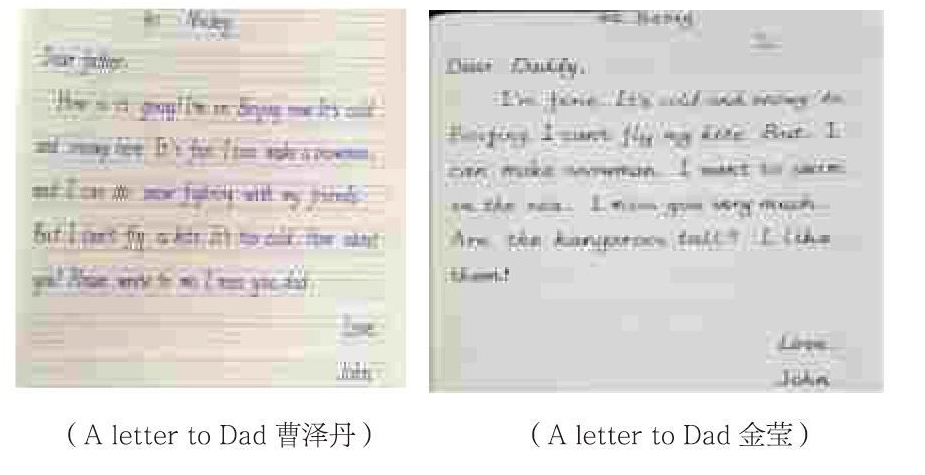 Dear father,
How is it going? I'm in Beijing now. It's cold
and snowy here. It's fun. I can make a snowman,
and I can do snow fighting with my friends.
But I can't fly a kite. It's too cold. How about
you? Please write to me. I miss you, dad.
Love
John
Dear Daddy,
I'm fine. It's cold and snowy in
Beijing. I can't fly my kite. But I
can make snowman. I want to swim
in the sea. I miss you very much.
Are the kangaroos tall? I like
them!
Love
John
(A letter to Dad 曹泽丹)
(A letter to Dad 金莹)